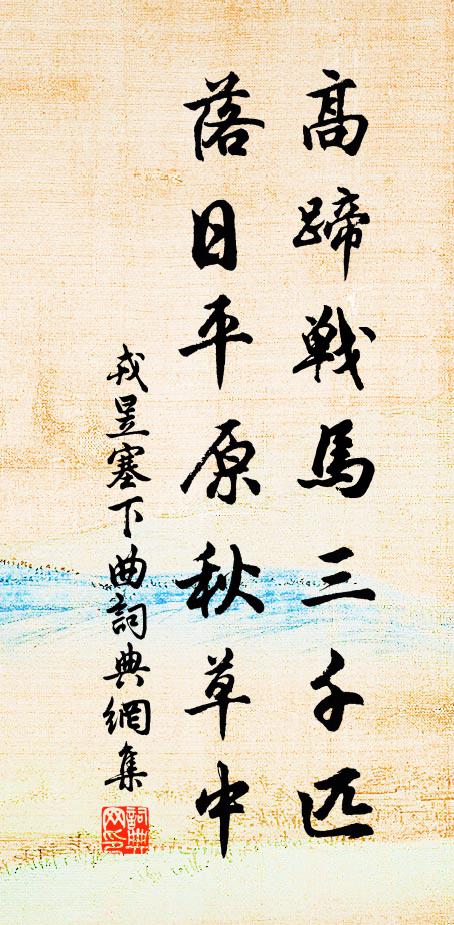 高蹄戰馬三千匹
落日平原秋草中
戎昱塞下曲詞典網集
詞典網印